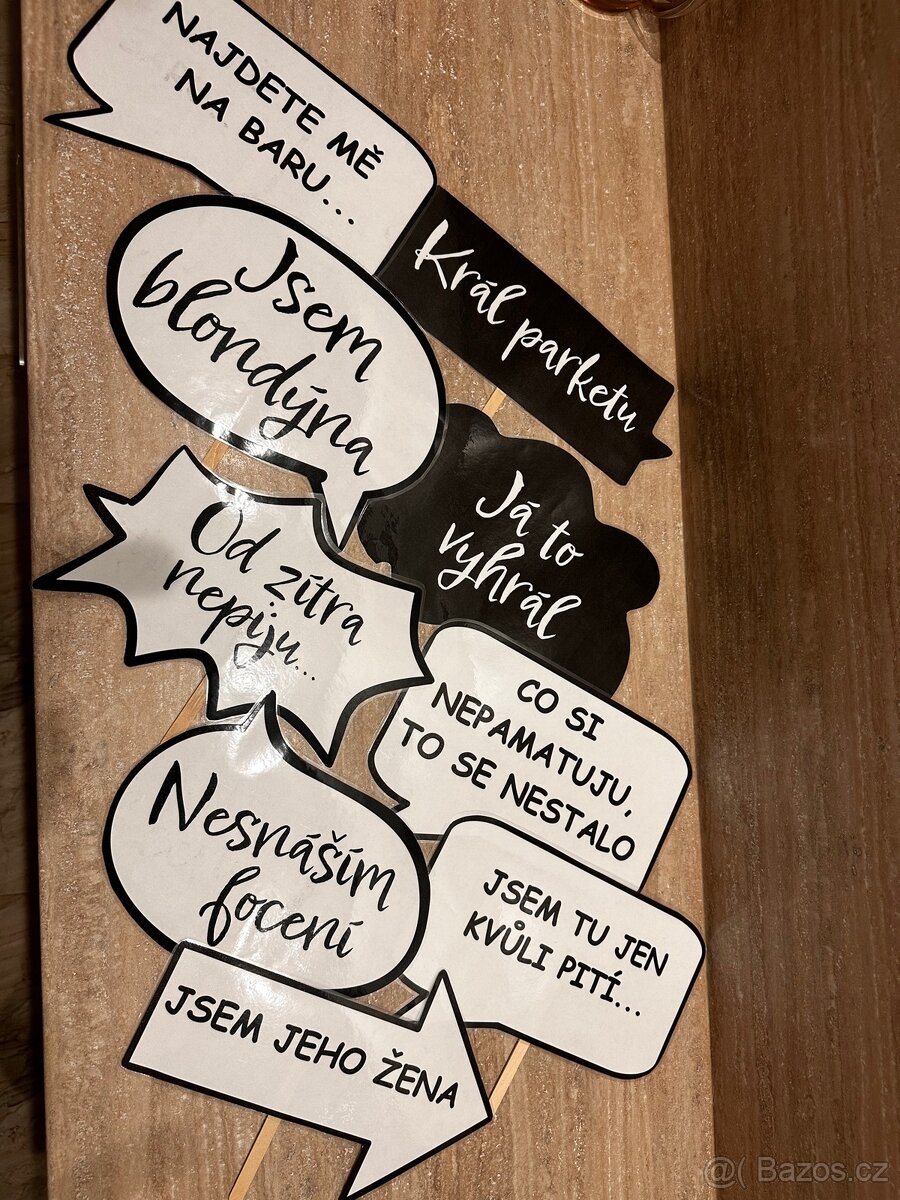 NAJDETE MĚ
NA BARU...
Král parketu
Jsem
blondýna
Já to
vyhrál
Od zítra
nepiju...
CO SI
NEPAMATUJU,
TO SE NESTALO
Nesnáším
focení
JSEM TU JEN
KVŮLI PITÍ...
JSEM JEHO ŽENA
@( Bazos.cz